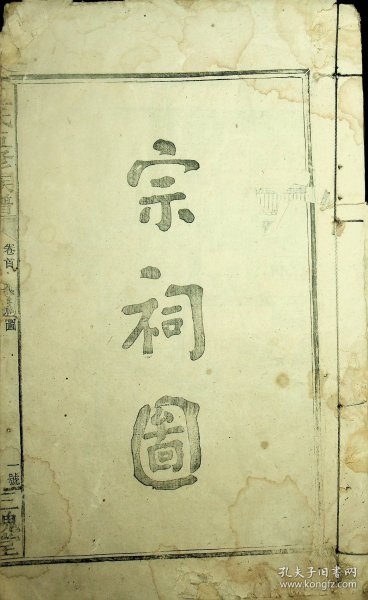 宗祠圖
卷首
圖
一號
三鬼堂
孔夫子旧书网
www.kongfz.com